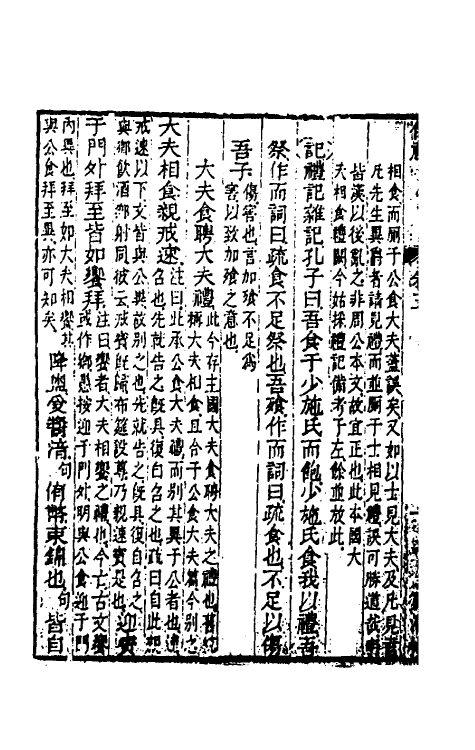 相食而厠于公食大夫蓋誤矣又如以士見大夫及凡見
凡先生異爵者請見禮而並厠于士相見禮誤可勝道哉
皆漢以後亂之非周公本文故宜正也此本國大
夫相食禮闕今始採禮記備考于左餘並放此
記禮記雜記孔子曰吾食于少施氏而飽少施氏食我以禮吾
祭作而詞曰疏食不足祭也吾飧作而詞曰疏食也不足以傷
吾子
傷害也言加飧不足為
害以致加飧之意也
大夫食聘大夫禮
此今存主國大夫食聘大夫之禮也舊
稱大夫相食且合于公食大夫篇今別
大夫相食親戒速
注曰此承公食大夫禮而別其異于公者也速
召也先就告之既具復自召之也疏曰自此
戒速以下文皆與公異故別之也先就告之既具復自召之
與鄉飲酒鄉射同彼云戒賓既歸布筵設尊乃親速賓是也
迎賓
于門外拜至皆如饗拜
注曰饗者大夫相饗之禮也今亡古文饗
或作鄉愚按迎于門外明與公食迎于門
內異也拜至如大夫相饗
與公食拜至異亦可知矣
降盥受醬湆
句
侑幣束錦也
句
皆自